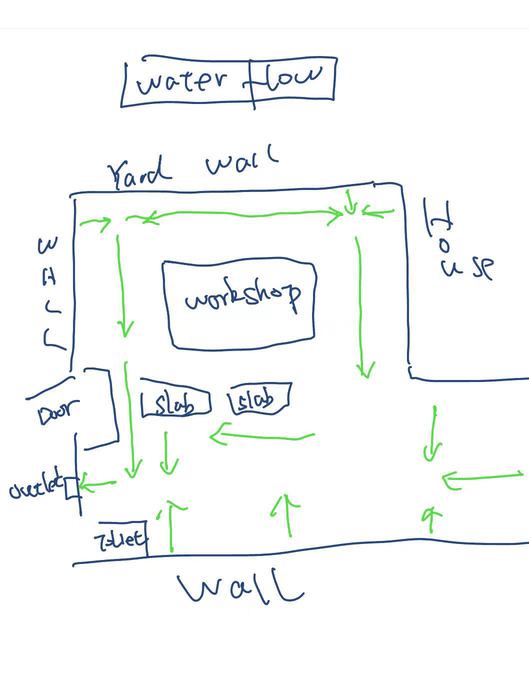 water flow
Yard wall
WALL
House
workshop
Door
slab
slab
outlet
Toilet
Wall